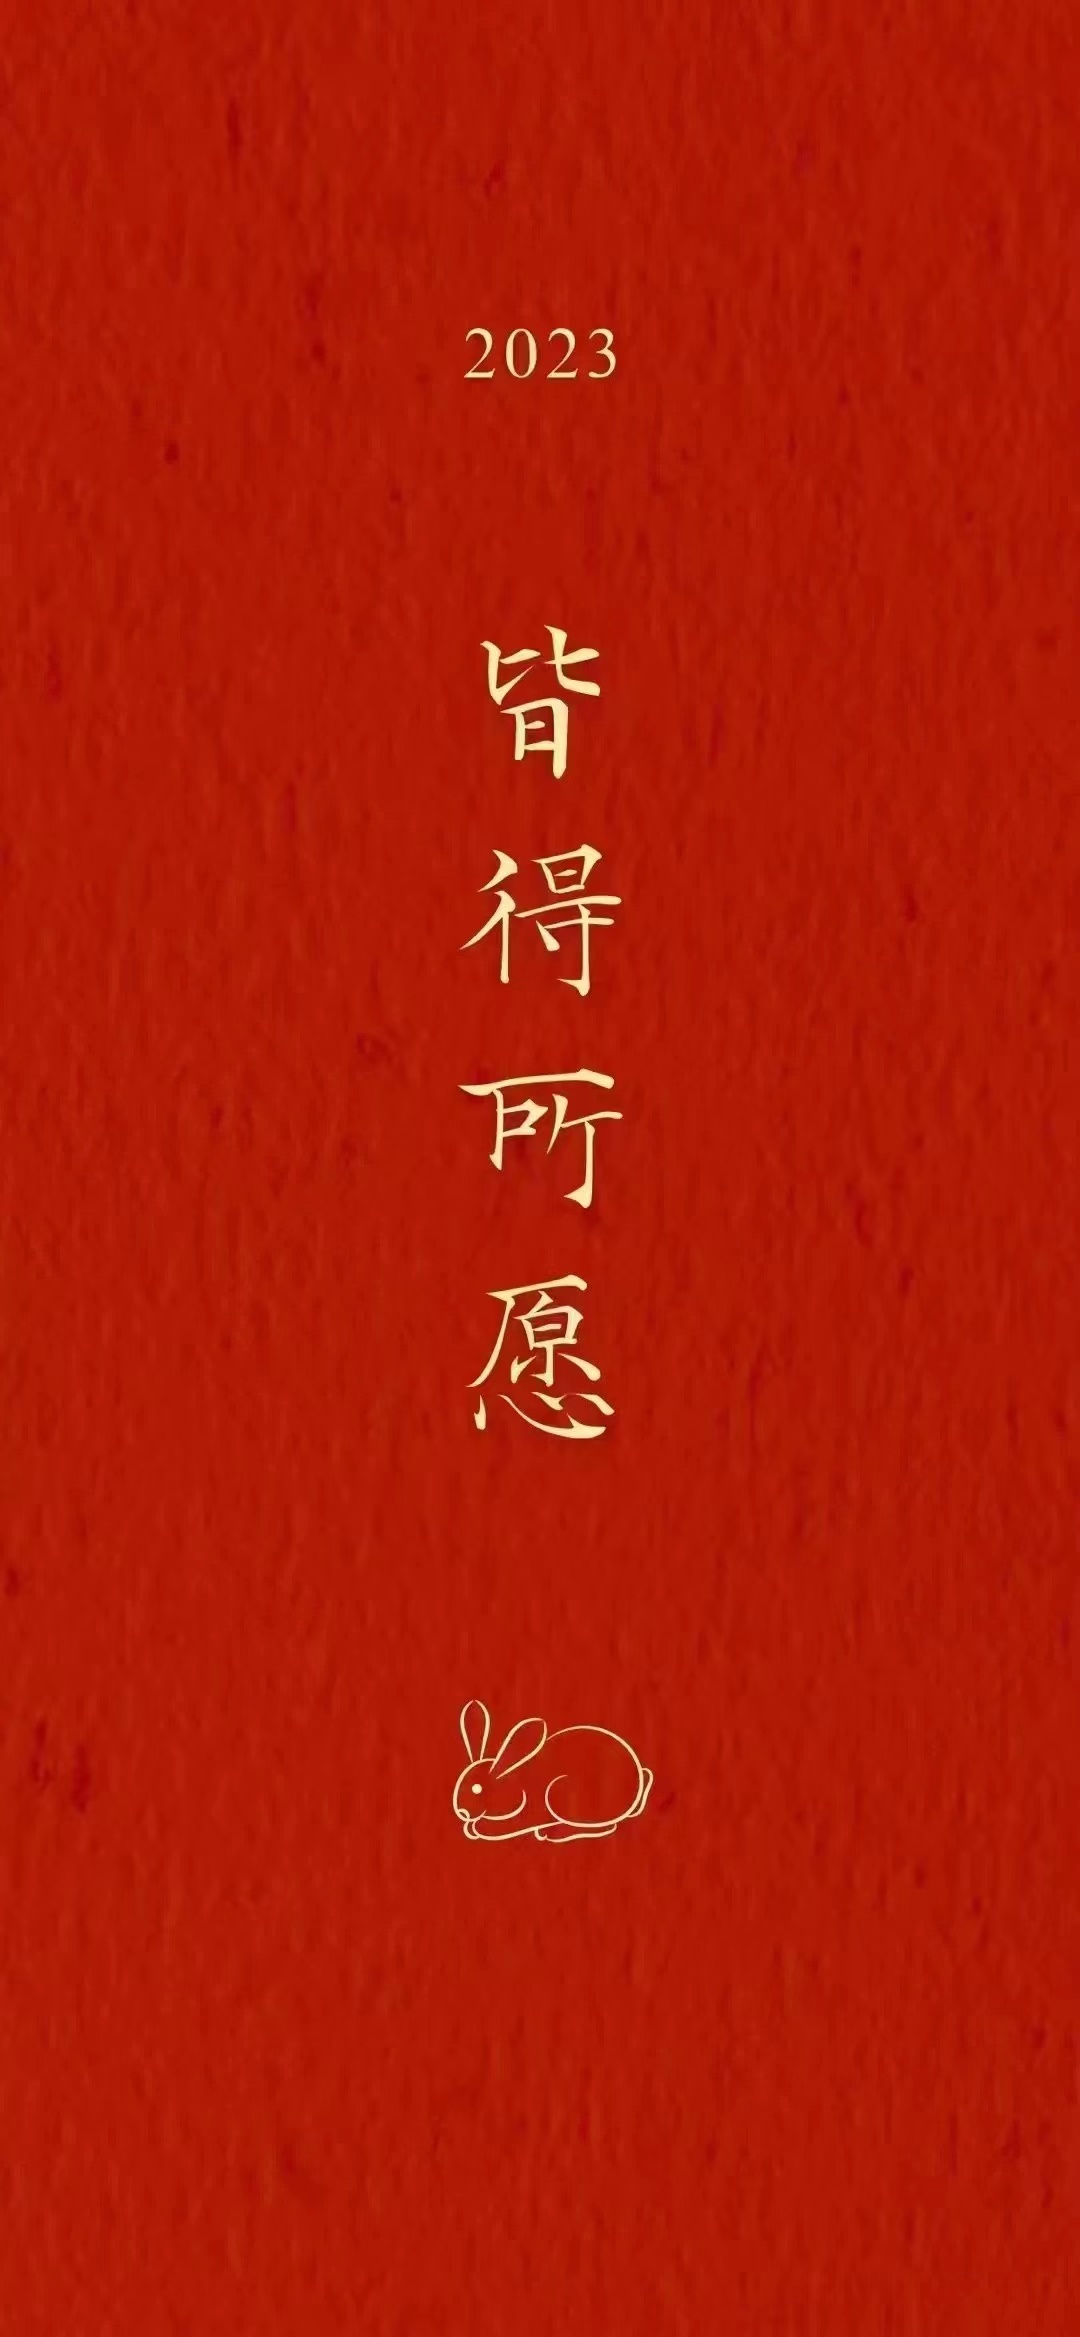 2023
皆得所愿